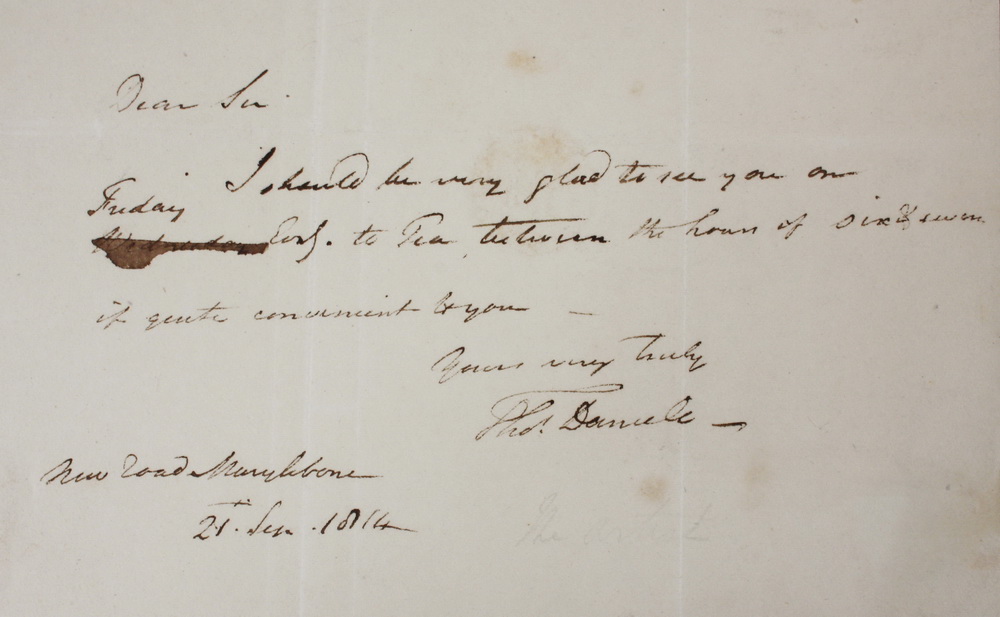 Dear Sir
I should be very glad to see you on
Friday
Wednesday Evg. to Tea between the hours of six & seven
if quite convenient to you —
Yours very truly
Thos. Daniell —
New Road Marylebone
21. Sep. 1814
The artist